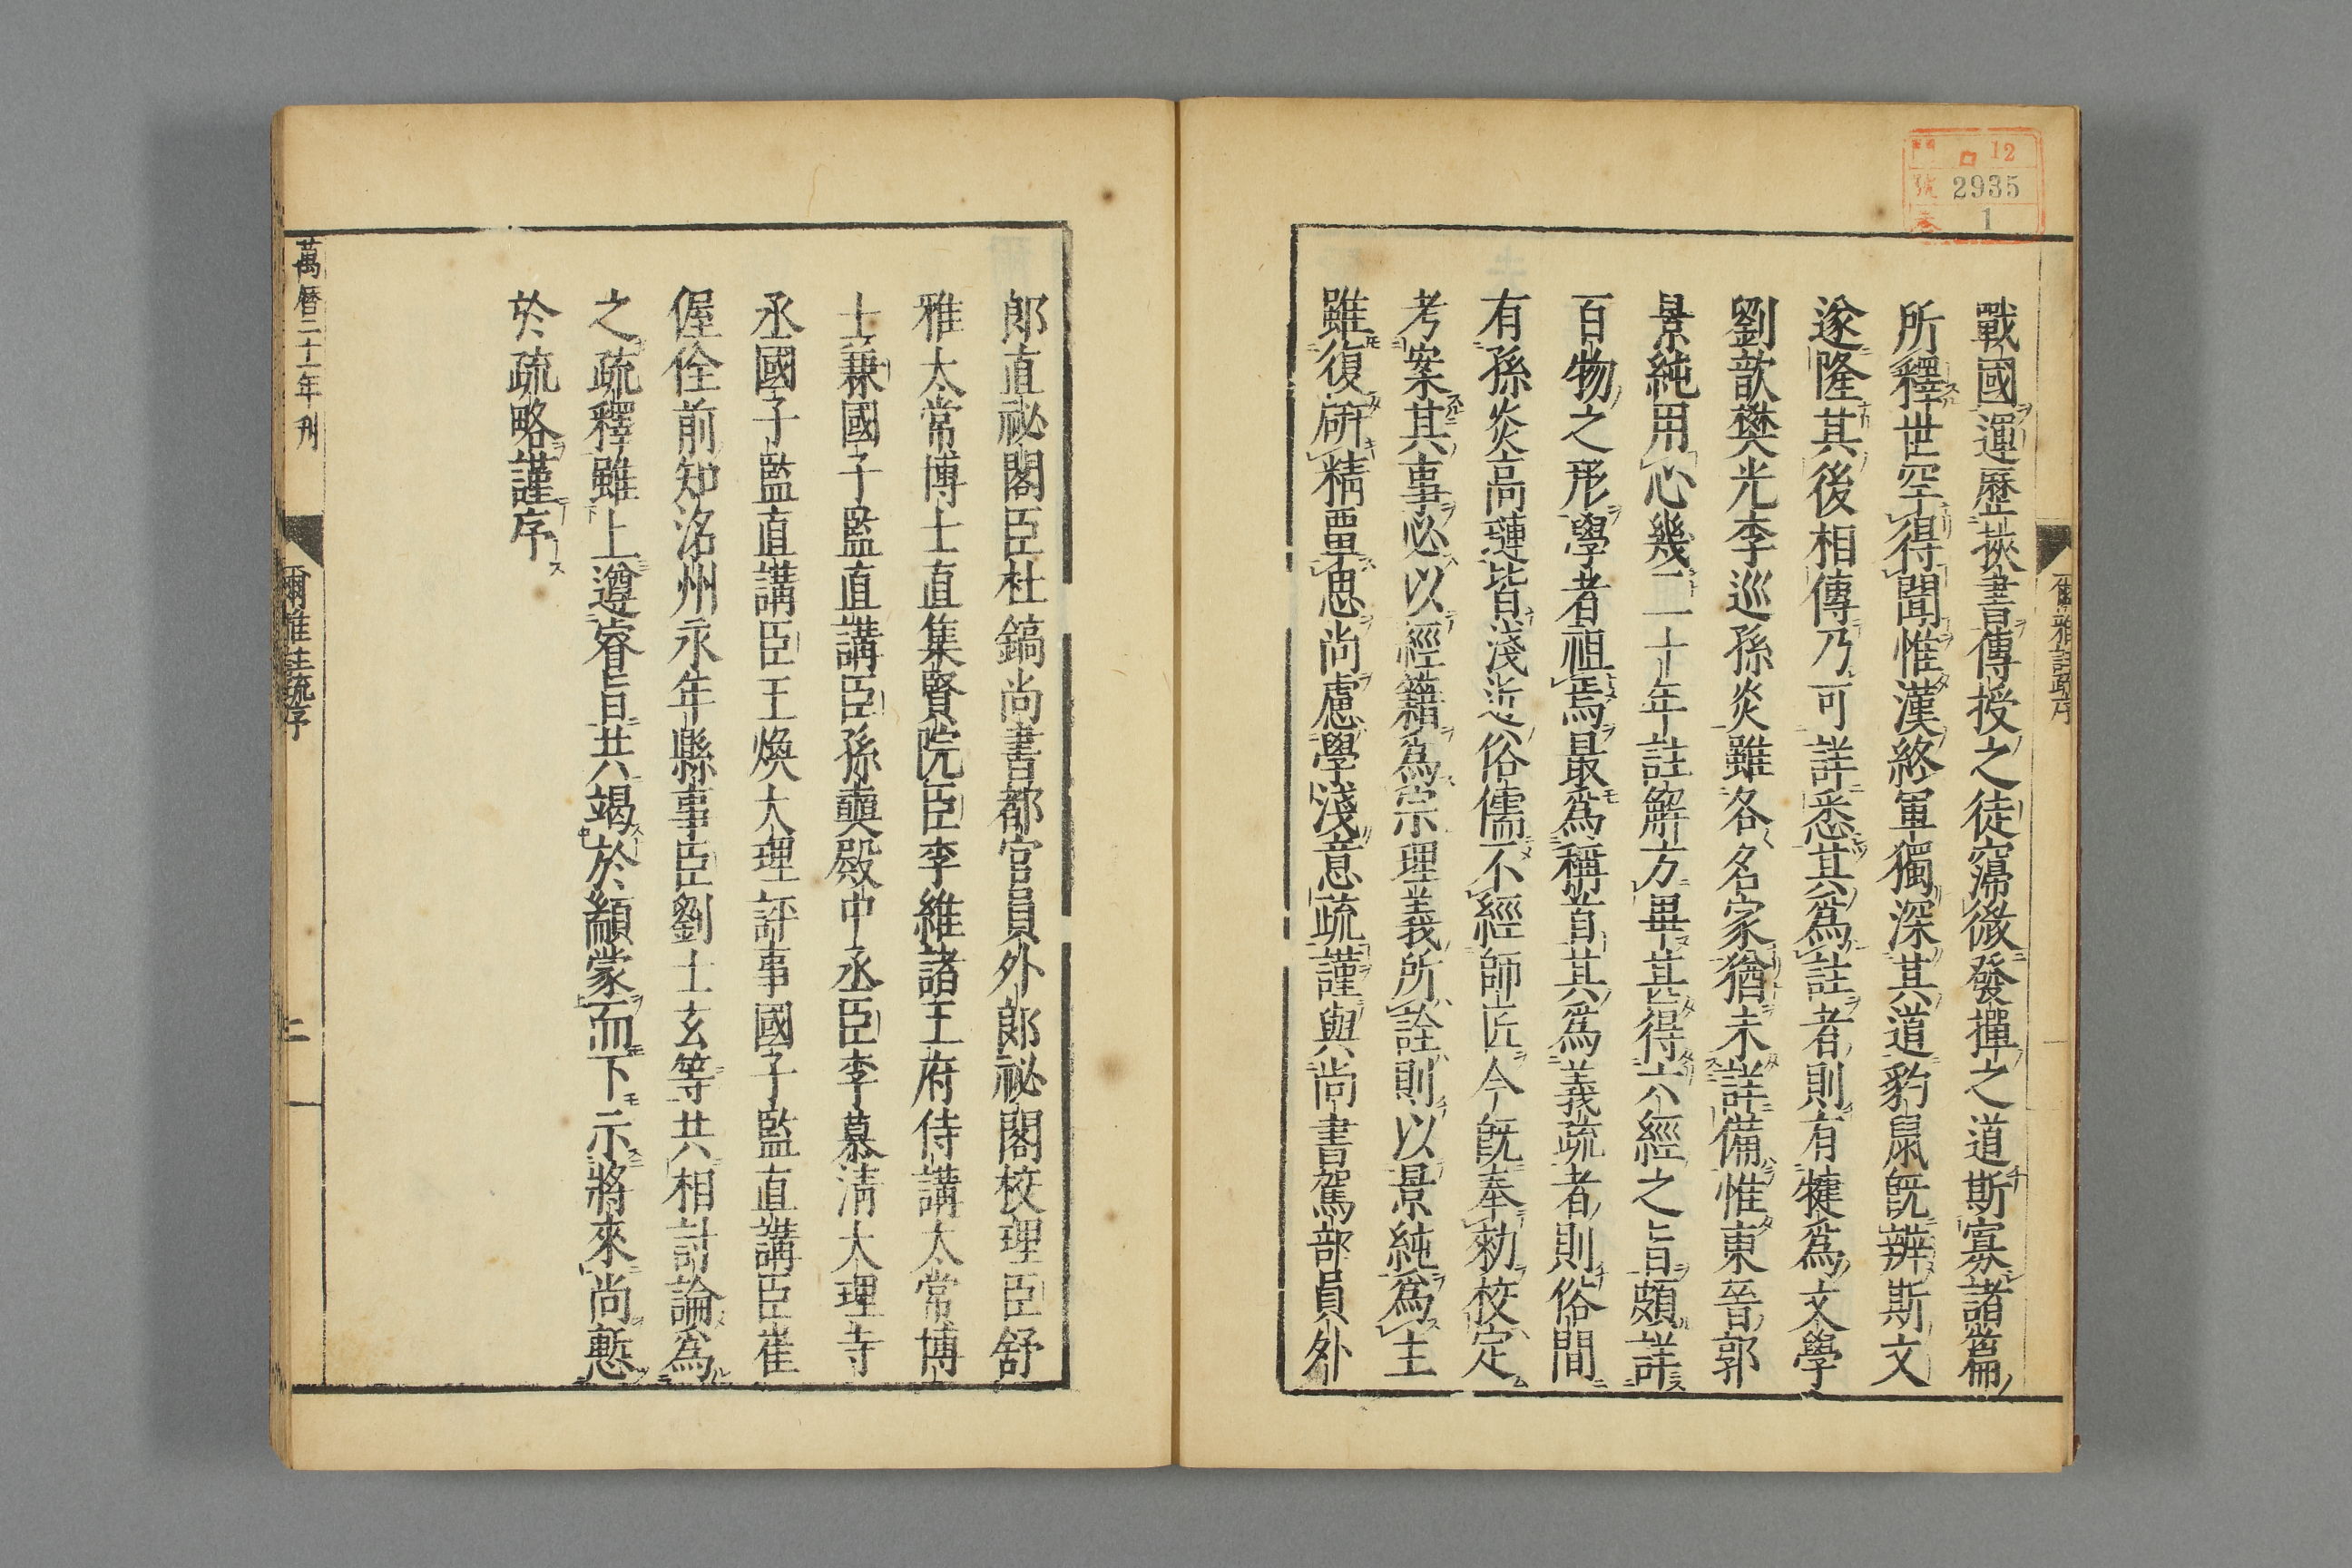 戰國運歷挾書傳授之徒寖微發揮之道斯寡諸篇
所釋世罕得聞惟漢終軍獨深其道豹鼠既辨斯文
遂隆其後相傳乃可詳悉其爲註者則有犍爲文學
劉歆樊光李巡孫炎雖各名家猶未詳備惟東晉郭
景純用心幾二十年註解方畢甚得六經之旨頗詳
百物之形學者祖焉最爲稱首其爲義疏者則俗間
有孫炎高璉皆淺近俗儒不經師匠今既奉勑校定
考案其事必以經籍爲宗理義所詮則以景純爲主
雖復硏精覃思尚慮學淺意疏謹與尚書駕部員外
爾雅註疏序
門 口 12
號 2935
卷 1
郎直祕閣臣杜鎬尚書都官員外郎祕閣校理臣舒
雅太常博士直集賢院臣李維諸王府侍講太常博
士兼國子監直講臣孫奭殿中丞臣李慕清大理寺
丞國子監直講臣王煥大理評事國子監直講臣崔
偓佺前知洺州永年縣事臣劉士玄等共相討論爲
之疏釋雖上遵睿旨共竭於顓蒙而下示將來尚慙
於疏略謹序
萬曆二十一年刊
爾雅註疏序
二